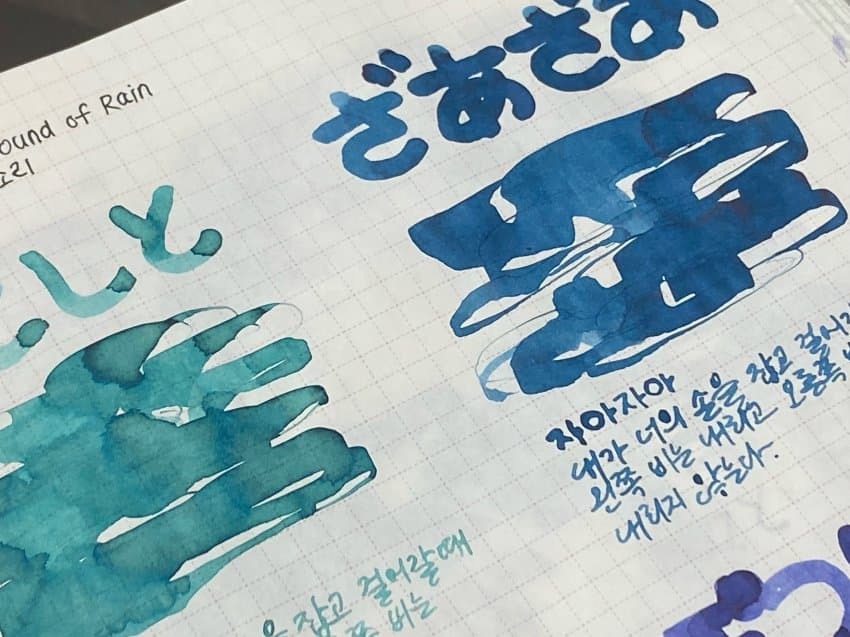 ound of Rain
소리
ざあざあ
しと
자아자아
내가 너의 손을 잡고 걸어갈
왼쪽 비는 내리고 오른쪽
내리지 않는다.
을 잡고 걸어갈 때
비는